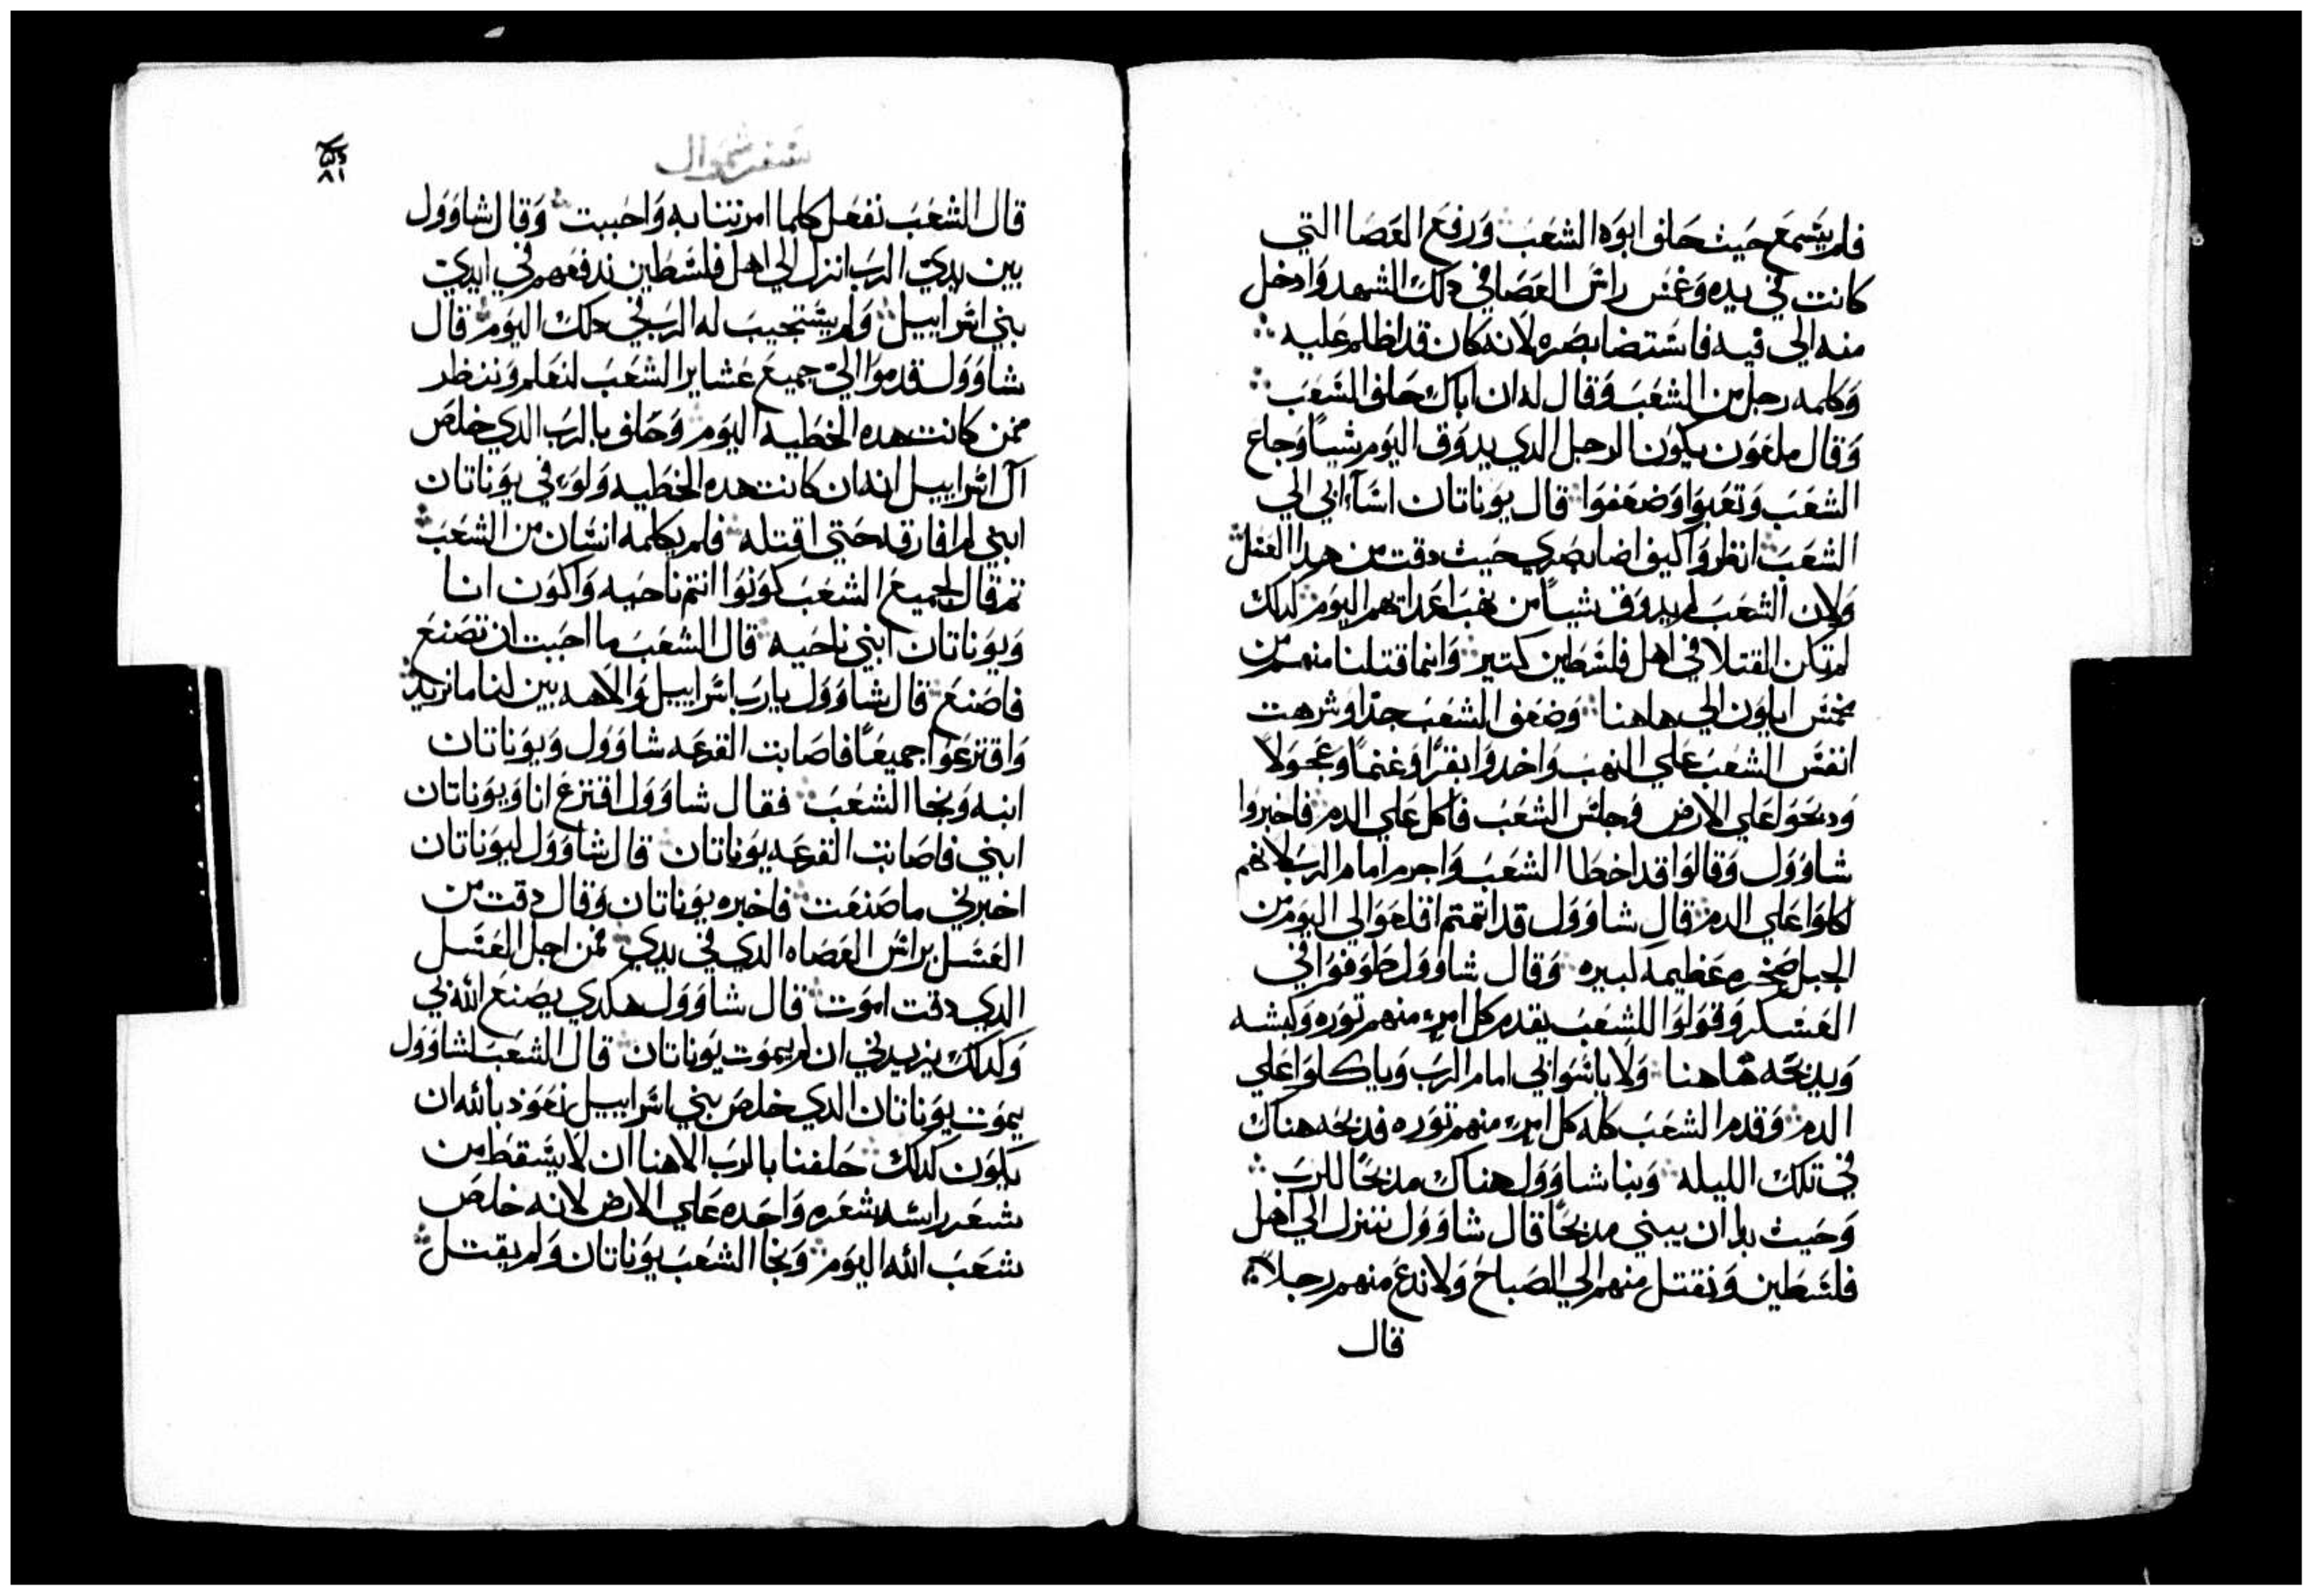 فلم يسمع حيث حلف ابوه الشعب ورفع العصا التي
كانت في يده وغمس راس العصا في دلك الشهد وادخل
منه الي فيه فاستضا بصره لانه كان قد اظلم عليه
وكلمه رجل من الشعب وقال له ان اباك حلف الشعب
وقال ملعون يكون الرجل الدي يدوق اليوم شياً وجاع
الشعب وتعبوا وضعفوا قال يوناتان اسآء ابي الي
الشعب انظروا كيف اضا بصري حيث دقت من هدا العسل
ولان الشعب لم يدوق شياً من نهب اعدايهم اليوم كدلك
لم تكن القتلا في اهل فلسطين كتير وانما قتلنا منهم من
مخمس ايلون الي هاهنا وضعف الشعب جداً وشرهت
انفس الشعب علي النهب واخدوا بقراً وغنماً وعجولاً
ودبحوا علي الارض وجلس الشعب فاكل علي الدم فاخبروا
شاوول وقالوا قد اخطا الشعب واجرم امام الرب لانهم
اكلوا علي الدم قال شاوول قد اتمتم اقلعوا لي اليوم من
الجبل صخره عظيمه كبيره وقال شاوول طوفوا في
العسكر وقولوا للشعب يقدم كل امرء منهم توره وكبشه
ويدبحه هاهنا ولا ياتموا بي امام الرب وياكلوا علي
الدم وقدم الشعب كله كل امرء منهم توره فدبحه هناك
في تلك الليله وبنا شاوول هناك مدبحاً للرب
وحيث بدا ان يبني مدبحاً قال شاوول ننزل الي اهل
فلسطين ونقتل منهم الي الصباح ولا ندع منهم رجلاً
قال
سفر شموال
٨١
قال الشعب نفعل كلما امرتنا به واحببت وقال شاوول
بين يدي الرب انزل الي اهل فلسطين تدفعهم في ايدي
بني اسراييل ولم يستجيب له الرب في دلك اليوم قال
شاوول قدموا الي جميع عشاير الشعب لنعلم وننظر
ممن كانت هده الخطيه اليوم وحلف بالرب الدي خلص
آل اسراييل انه ان كانت هده الخطيه ولو في يوناتان
ابني لم افارقه حتي اقتله فلم يكلمه انسان من الشعب
تم قال لجميع الشعب كونوا انتم ناحيه واكون انا
ويوناتان ابني ناحيه قال الشعب ما احببت ان تصنع
فاصنع قال شاوول يا رب اسراييل والاهه بين لنا ما نريد
واقترعوا جميعاً فاصابت القرعه شاوول ويوناتان
ابنه ونجا الشعب فقال شاوول اقترع انا ويوناتان
ابني فاصابت القرعه يوناتان قال شاوول ليوناتان
اخبرني ما صنعت فاخبره يوناتان وقال دقت من
العسل براس العصاه الدي في يدي فمن اجل العسل
الدي دقت اموت قال شاوول هكدي يصنع الله بي
وكدلك يزيدني ان لم يموت يوناتان قال الشعب لشاوول
يموت يوناتان الدي خلص بني اسراييل نعود بالله ان
يكون كدلك حلفنا بالرب الاهنا ان لا يسقط من
شعر راسه شعره واحده علي الارض لانه خلص
شعب الله اليوم ونجا الشعب يوناتان ولم يقتل